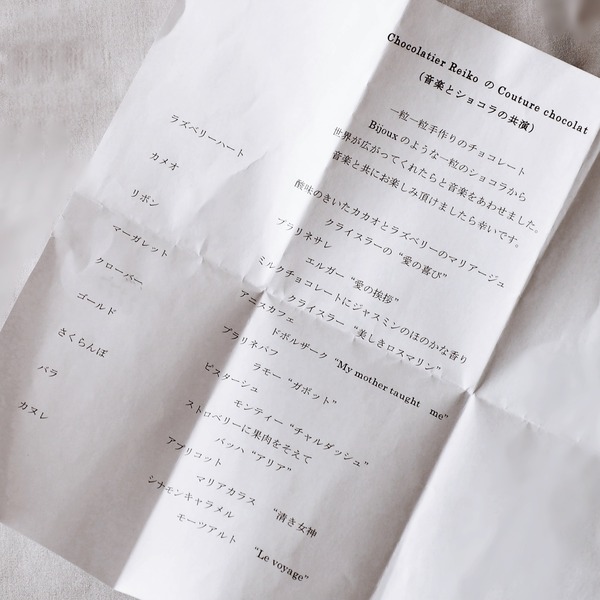 Chocolatier Reiko の Couture chocolat
(音楽とショコラの共演)
一粒一粒手作りのチョコレート
Bijouxのような一粒のショコラから
世界が広がってくれたらと音楽をあわせました。
音楽と共にお楽しみ頂けましたら幸いです。
ラズベリーハート 酸味のきいたカカオとラズベリーのマリアージュ
クライスラーの “愛の喜び”
カメオ プラリネサレ
エルガー “愛の挨拶”
リボン ミルクチョコレートにジャスミンのほのかな香り
クライスラー “美しきロスマリン”
マーガレット アニスカフェ
ドボルザーク “My mother taught me”
クローバー プラリネパフ
ラモー “ガボット”
ゴールド ピスターシュ
モンティー “チャルダッシュ”
さくらんぼ ストロベリーに果肉をそえて
バッハ “アリア”
バラ アプリコット
マリアカラス “清き女神
カヌレ シナモンキャラメル
モーツアルト “Le voyage”